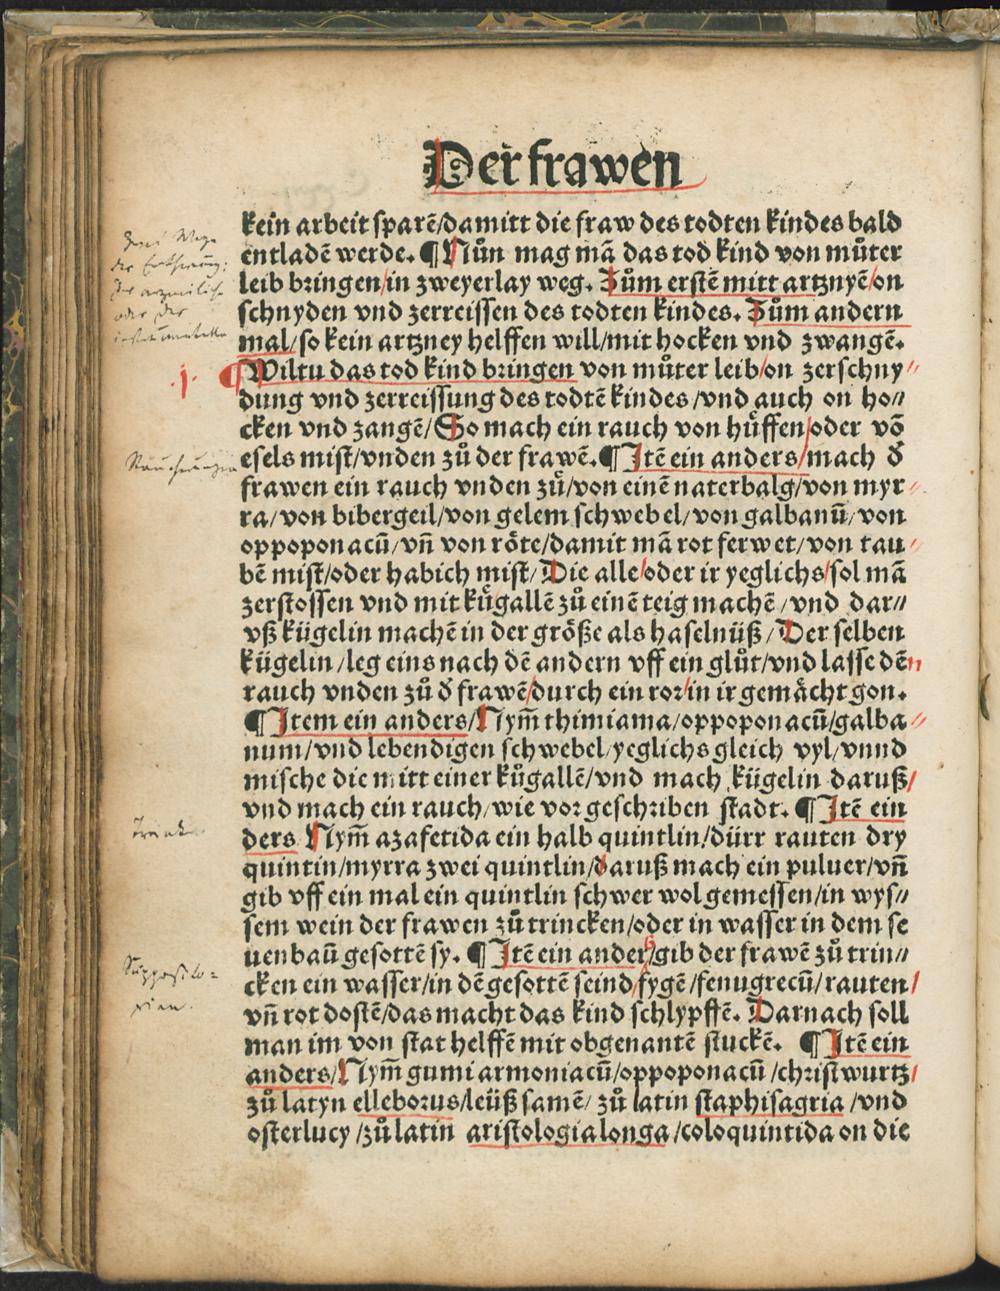 Der frawen
kein arbeit sparē/damitt die fraw des todten kindes bald
entladē werde. ¶ Nůn mag mā das tod kind von můter
leib bringen/in zweyerlay weg. Zům erstē mitt artznyē/on
schnyden vnd zerreissen des todten kindes. Zům andern
mal/so kein artzney helffen will/mit hocken vnd zwangē.
.j. ¶ Wiltu das tod kind bringen von můter leib/on zerschny//
dung vnd zerreissung des todtē kindes/vnd auch on ho//
cken vnd zangē/So mach ein rauch von hůffen/oder vō
esels mist/vnden zů der frawē. ¶ Itē ein anders/mach d̕
frawen ein rauch vnden zů/von einē naterbalg/von myr//
ra/von bibergeil/von gelem schwebel/von galbanū/von
oppoponacū/vn̄ von röte/damit mā rot ferwet/von tau//
bē mist/oder habich mist/Die alle/oder ir yeglichs/sol mā
zerstossen vnd mit kůgallē zů einē teig machē/vnd dar//
vß kügelin machē in der größe als haselnüß/Der selben
kügelin/leg eins nach dē andern vff ein glůt/vnd lasse dēn
rauch vnden zů d̕ frawē/durch ein ror/in ir gemächt gon.
¶ Item ein anders/Nym̄ thimiama/oppoponacū/galba//
num/vnd lebendigen schwebel/yeglichs gleich vyl/vnnd
mische die mitt einer kůgallē/vnd mach kügelin daruß/
vnd mach ein rauch/wie vor geschriben stadt. ¶ Itē ein
ders Nym̄ azafetida ein halb quintlin/dürr rauten dry
quintin/myrra zwei quintlin/daruß mach ein puluer/vn̄
gib vff ein mal ein quintlin schwer wol gemessen/in wys//
sem wein der frawen zů trincken/oder in wasser in dem se
uenbaū gesottē sy. ¶ Itē ein anders/gib der frawē zů trin//
cken ein wasser/in dē gesottē seind/fygē/fenugrecū/rauten/
vn̄ rot dostē/das macht das kind schlypffē. Darnach soll
man im von stat helffē mit obgenantē stuckē. ¶ Itē ein
anders/Nym̄ gumi armoniacū/oppoponacū/christwurtz/
zů latyn elleborus/leüß samē/zů latin staphisagria/vnd
osterlucy/zů latin aristologia longa/coloquintida on die
Räucherungen
Tränke
Supposito=
rien.